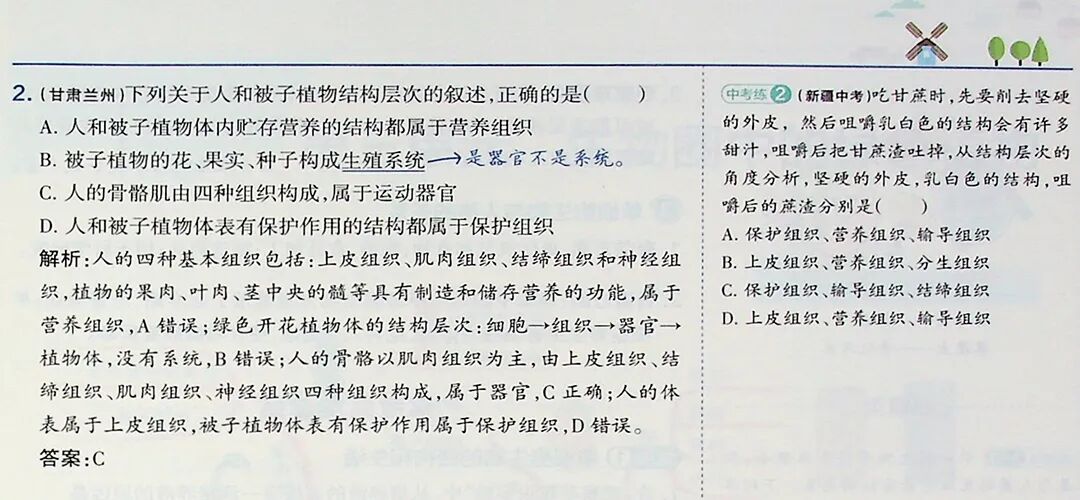 2.(甘肃兰州)下列关于人和被子植物结构层次的叙述,正确的是(　　)
A. 人和被子植物体内贮存营养的结构都属于营养组织
B. 被子植物的花、果实、种子构成生殖系统→是器官不是系统。
C. 人的骨骼肌由四种组织构成,属于运动器官
D. 人和被子植物体表有保护作用的结构都属于保护组织
解析:人的四种基本组织包括:上皮组织、肌肉组织、结缔组织和神经组
织,植物的果肉、叶肉、茎中央的髓等具有制造和储存营养的功能,属于
营养组织,A 错误;绿色开花植物体的结构层次:细胞→组织→器官→
植物体,没有系统,B 错误;人的骨骼以肌肉组织为主,由上皮组织、结
缔组织、肌肉组织、神经组织四种组织构成,属于器官,C 正确;人的体
表属于上皮组织,被子植物体表有保护作用属于保护组织,D 错误。
答案:C
中考练2 (新疆中考)吃甘蔗时,先要削去坚硬
的外皮、然后咀嚼乳白色的结构会有许多
甜汁,咀嚼后把甘蔗渣吐掉,从结构层次的
角度分析,坚硬的外皮,乳白色的结构,咀
嚼后的蔗渣分别是(　　)
A. 保护组织、营养组织、输导组织
B. 上皮组织、营养组织、分生组织
C. 保护组织、输导组织、结缔组织
D. 上皮组织、营养组织、输导组织